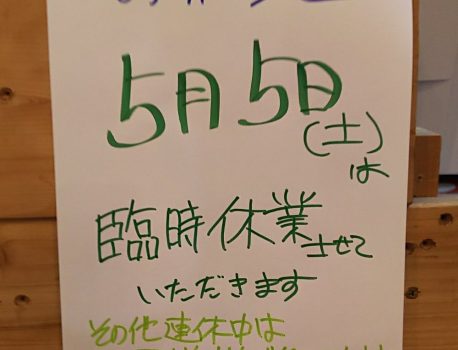 5月5日
(土)
は
臨時休業させて
いただきます
その他連休中は